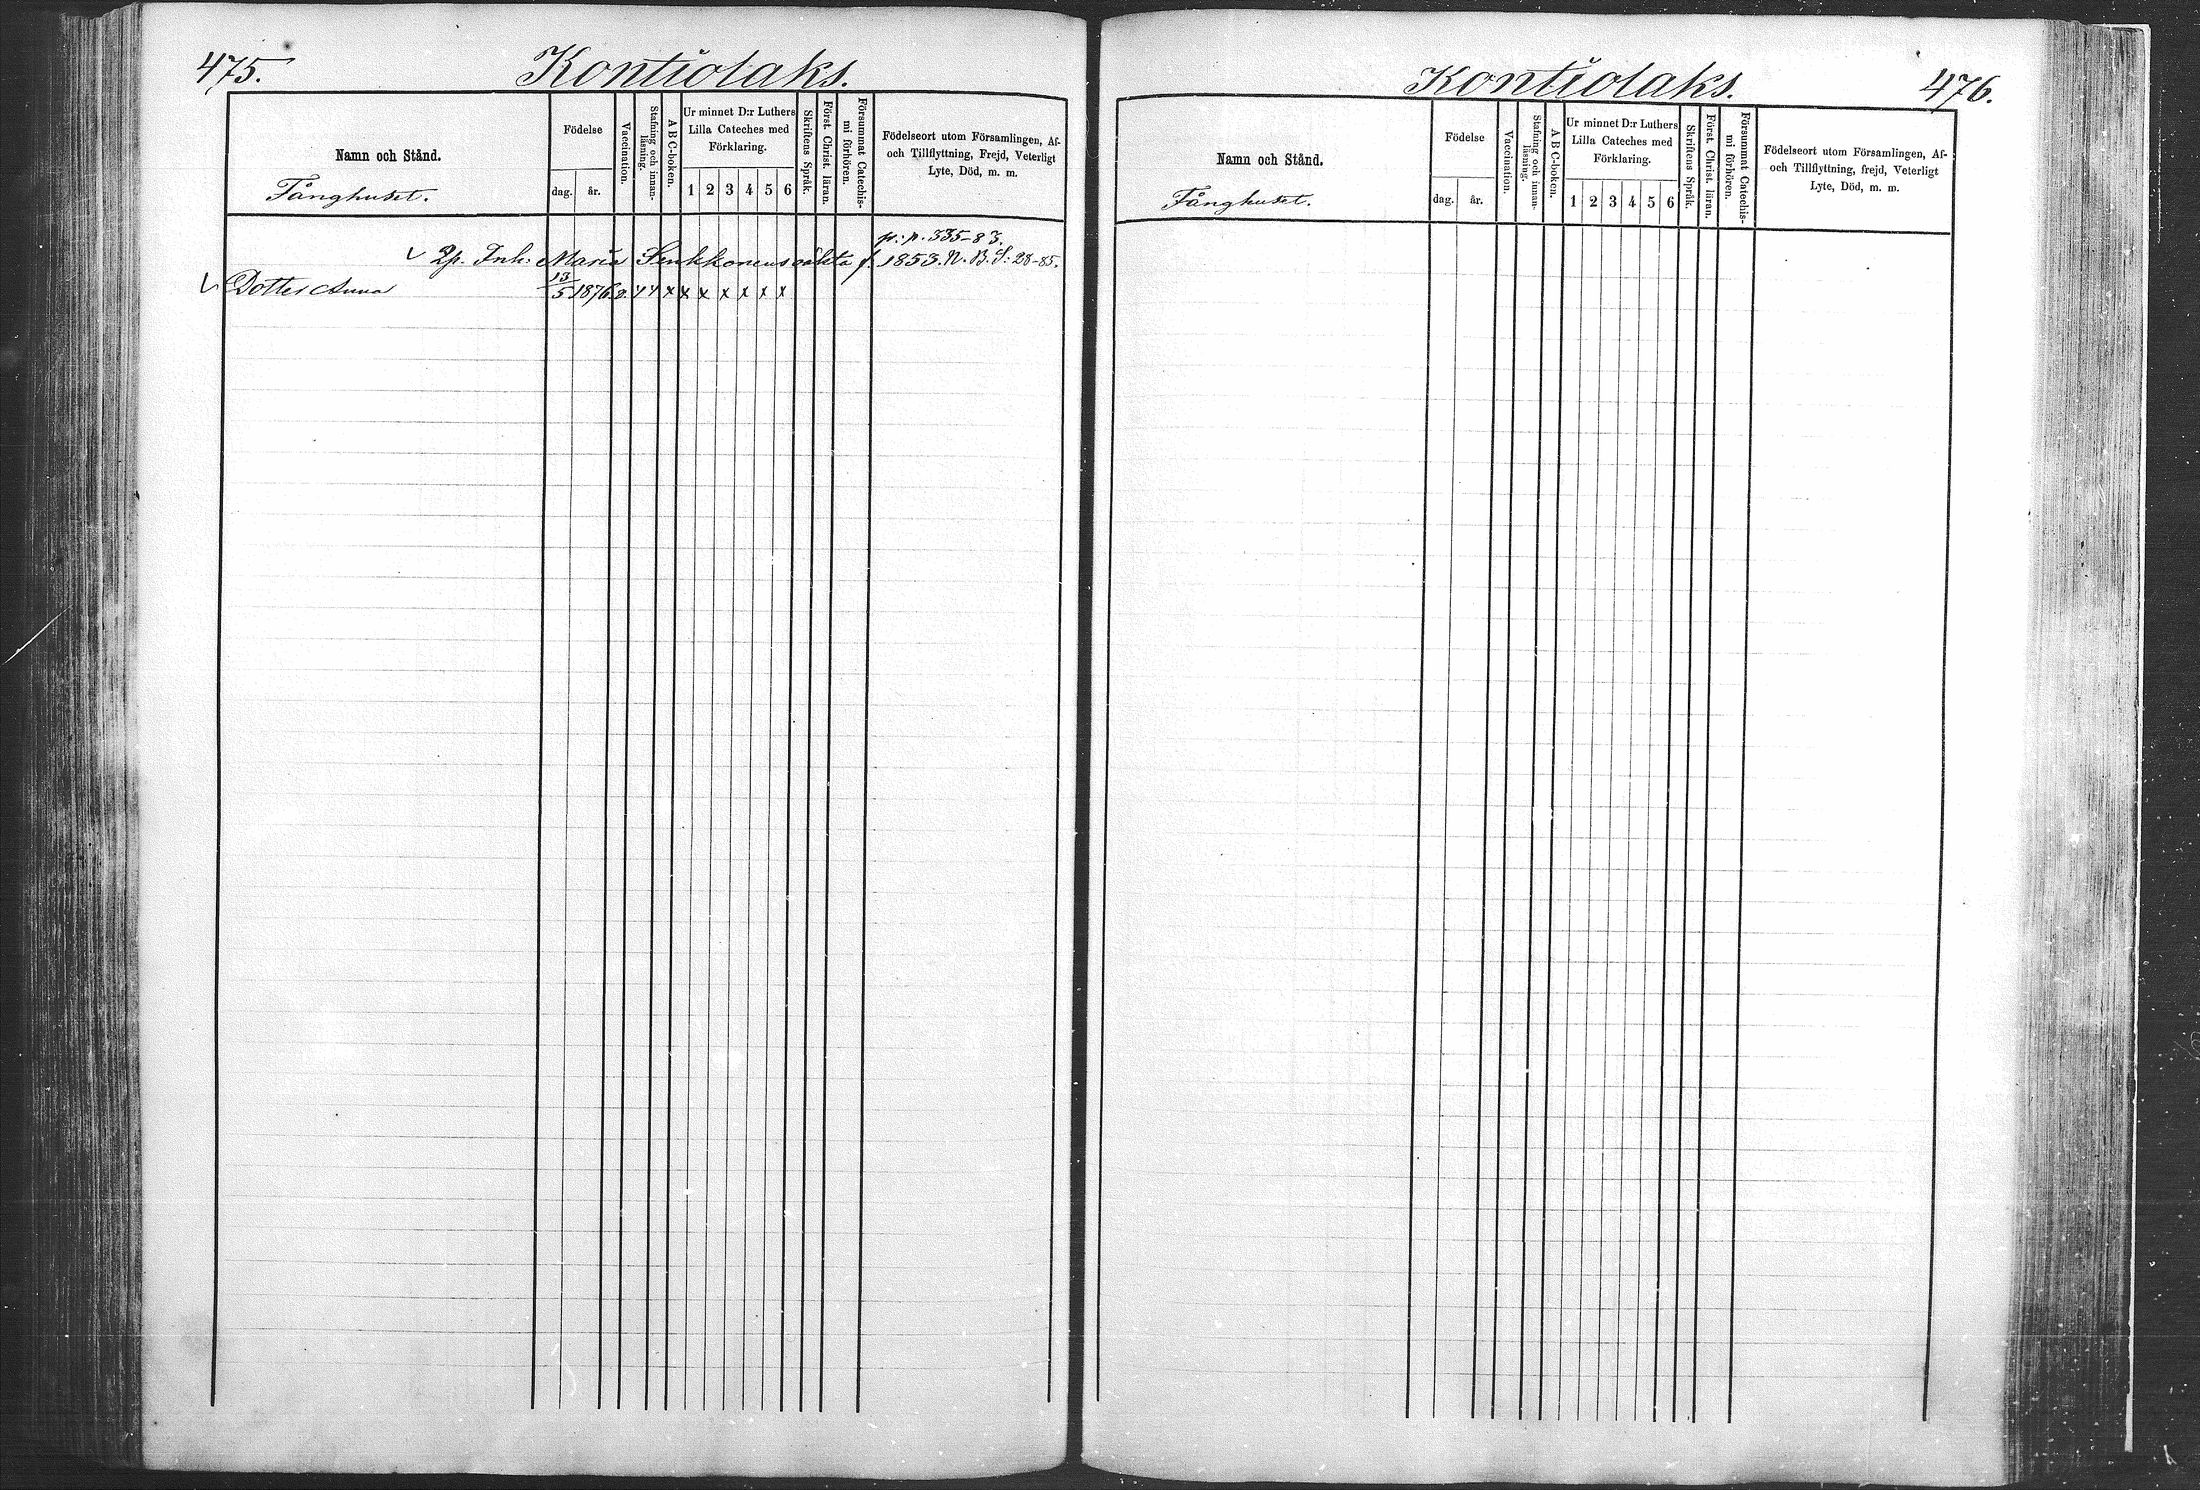 475.
Kontiolaks.
Namn och Stånd.
Fånghuset.
Födelse
dag. år.
Vaccination.
Stafning och innan-läsning.
A B C-boken.
Ur minnet D:r Luthers
Lilla Cateches med
Förklaring.
1 2 3 4 5 6
Skriftens Språk.
Först. Christ. läran.
Försummat Catechis-
mi förhören.
Födelseort utom Församlingen, Af-
och Tillflyttning, Frejd, Veterligt
Lyte, Död, m. m.
p. p. 335-83.
Inh: Maria Sinkkonens oäkta f. 1853. N. B. S: 28-85.
Dotter Anna 13/5 1876 v. x x x x x x x
Kontiolaks.
476.
Namn och Stånd.
Fånghuset.
Födelse
dag. år.
Vaccination.
Stafning och innan-läsning.
A B C-boken.
Ur minnet D:r Luthers
Lilla Cateches med
Förklaring.
1 2 3 4 5 6
Skriftens Språk.
Först. Christ. läran.
Försummat Catechis-
mi förhören.
Födelseort utom Församlingen, Af-
och Tillflyttning, frejd, Veterligt
Lyte, Död, m. m.